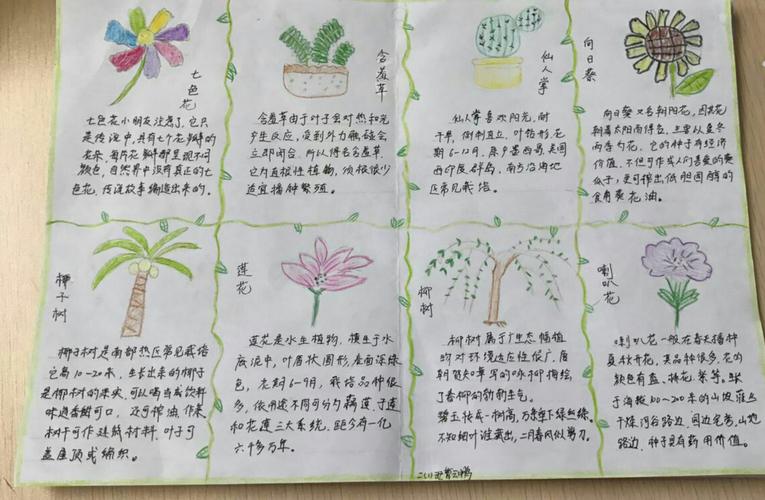 七色花
七色花小朋友注意了,它只
是传说中,具有七个花瓣的
花朵,每片花瓣都呈现不同
颜色,自然界中没有真正的七
色花,传说故事编造出来的。
含羞草
含羞草由于叶子会对热和光
产生反应,受到外力触碰会
立即闭合,所以得名含羞草。
它为直根性植物,须根很少
适宜播种繁殖。
仙人掌
仙人掌喜欢阳光,耐
干旱,倒刺直立,叶钻形,花
期6-12月,原产墨西哥美国
西印度群岛,南方沿海地
区常见栽培。
向日葵
向日葵又名朝阳花,因其花
朝着太阳而得名,
它的种子有经济
价值,不但可作成人们喜爱的葵
瓜子,更可榨出低胆固醇的
食用葵花油。
椰子树
椰子树是南部热区常见栽培
它高10-20米,生长出来的椰子
是椰树的果实,可以喝当成饮料
味道香甜可口,还可榨油,作菜
树干可作建筑材料,叶子可
盖屋顶或编织。
莲花
莲花是水生植物,横生于水
底泥中,叶盾状圆形,表面深绿
色,花期6-9月,栽培品种很
多,依用途不同可分为藕莲、子莲
和花莲三大系统,距今有一亿
六千多万年。
柳树
柳树属于广生态幅植
物对环境适应性很广,唐
朝贺知章写的咏柳描绘
了春柳的勃勃生气。
碧玉妆成一树高,万条垂下绿丝绦。
不知细叶谁裁出,二月春风似剪刀。
喇叭花
喇叭花一般在春天播种
夏秋开花,其品种很多,花的
颜色有蓝、桃花、紫等。
干燥河谷路边、园边宅旁、山地
路边,种子具有药用价值。